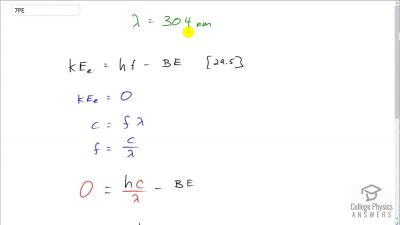 7PE
λ = 304 nm
KEₑ = hf - BE [29.5]
KEₑ = 0
c = f λ
f = c/λ
0 = hc/λ - BE
College Physics
ANSWERS